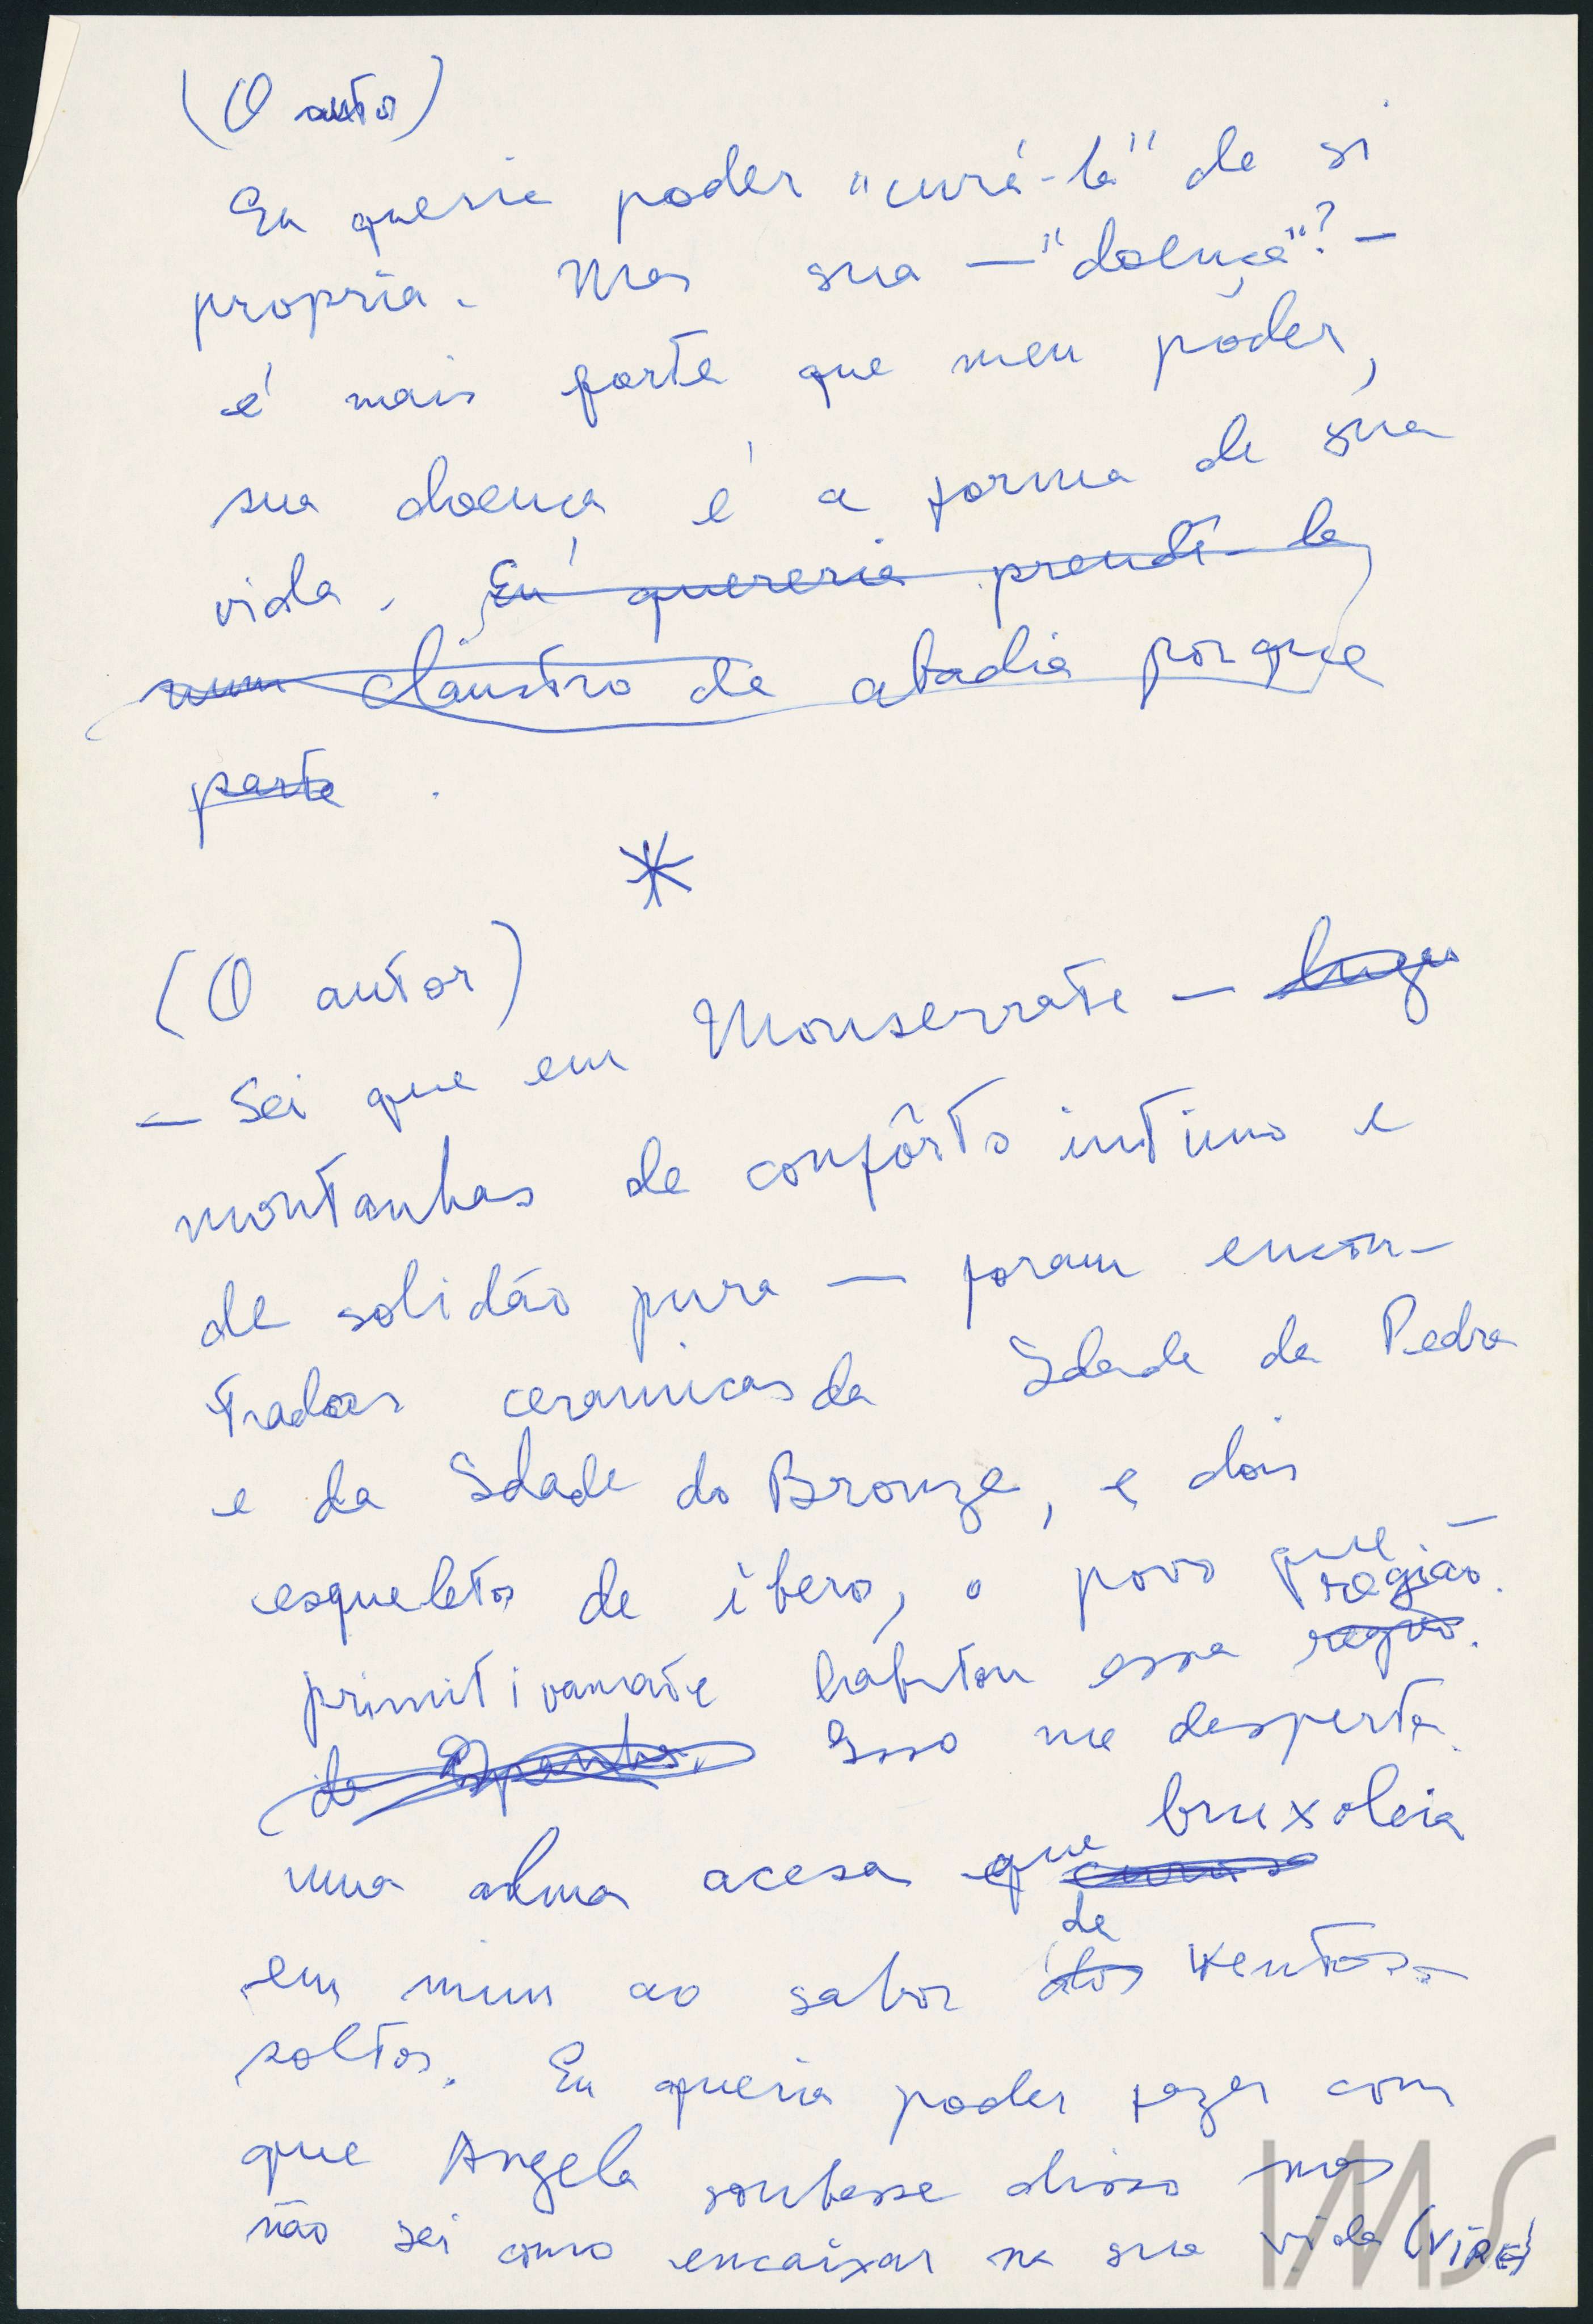 (O autor)
Eu queria poder "curá-la" de si
propria. Mas sua — "doença"? —
é mais forte que meu poder,
sua doença é a forma de sua
vida. Eu quereria prendê-la
num claustro de abadia porque
parte.
*
(O autor)
— Sei que em Monserrate —
montanhas de confôrto intimo e
de solidão pura — foram encon-
tradas ceramicas da Idade da Pedra
e da Idade do Bronze, e dois
esqueletos de ibero, o povo que —
região.
primitivamente habitou essa região.
de Espanha. Isso me desperta
bruxoleia
uma alma acesa que
de
em mim ao sabor dos ventos
soltos. Eu queria poder fazer com
que Angela soubesse disso mas
não sei como encaixar na sua vida (VIRE)
IMS